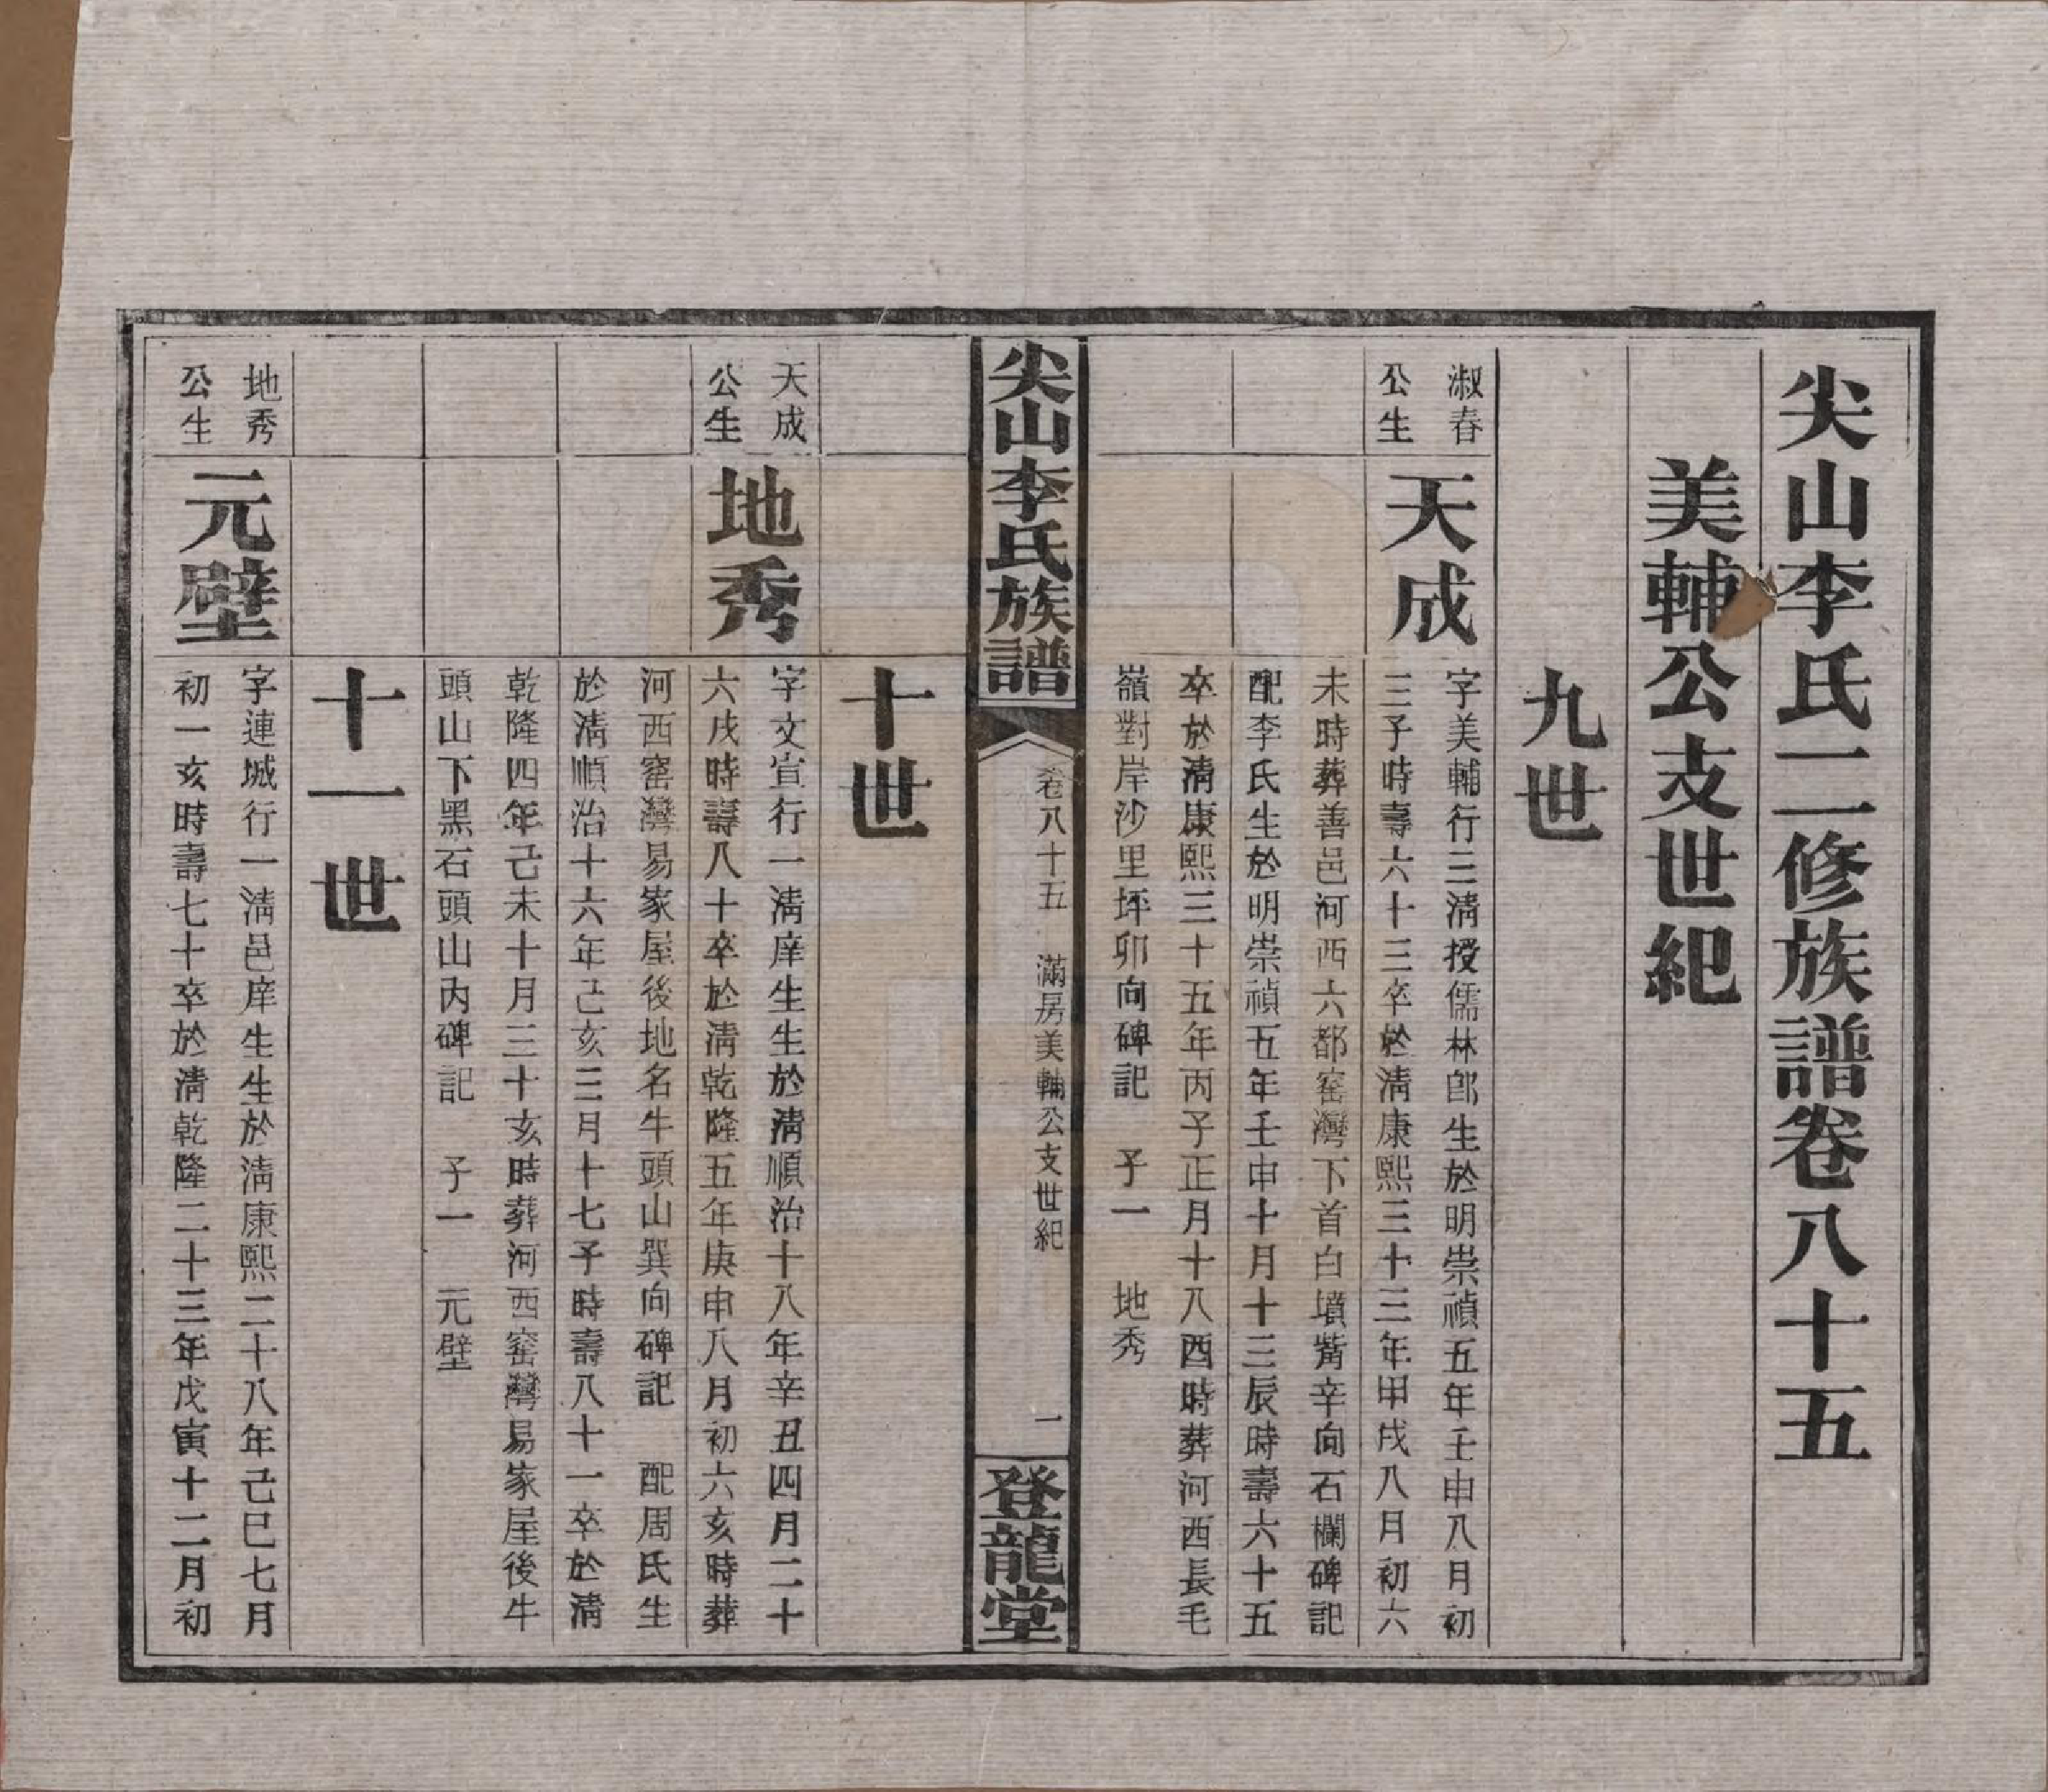 尖山李氏二修族譜卷八十五
美輔公支世紀
九世
淑春
公生
天成
字美輔行三淸授儒林郎生於明崇禎五年壬申八月初
三子時壽六十三卒於淸康熙三十三年甲戌八月初六
未時葬善邑河西六都窑灣下首白墳嘴辛向石欄碑記
配李氏生於明崇禎五年壬申十月十三辰時壽六十五
卒於淸康熙三十五年丙子正月十八酉時葬河西長毛
嶺對岸沙里坪卯向碑記　子一　地秀
尖山李氏族譜
卷八十五　滿房美輔公支世紀
一
登龍堂
十世
天成
公生
地秀
字文宣行一淸庠生生於淸順治十八年辛丑四月二十
六戌時壽八十卒於淸乾隆五年庚申八月初六亥時葬
河西窑灣易家屋後地名牛頭山巽向碑記　配周氏生
於淸順治十六年己亥三月十七子時壽八十一卒於淸
乾隆四年己未十月三十亥時葬河西窑灣易家屋後牛
頭山下黑石頭山內碑記　子一　元壁
十一世
地秀
公生
元壁
字連城行一淸邑庠生生於淸康熙二十八年己巳七月
初一亥時壽七十卒於淸乾隆二十三年戊寅十二月初